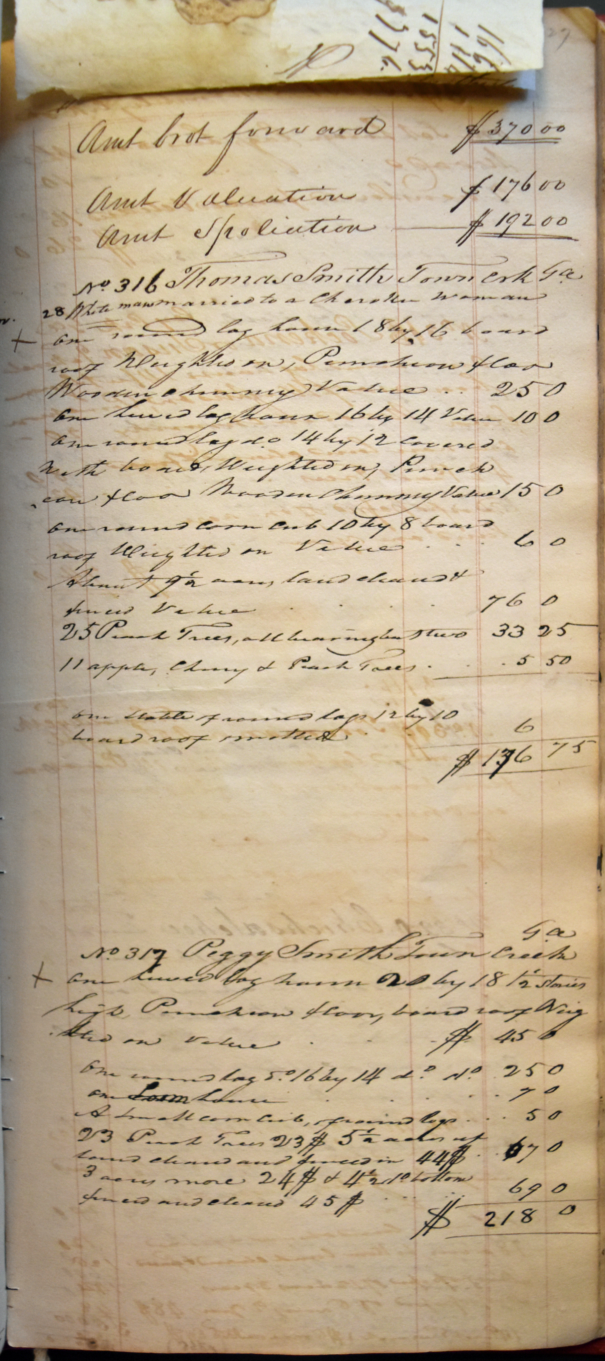 29
166
1553
$376
Amt brot forward $370 00
Amt Valuation $176 00
Amt Spoliation $192 00
No 316 Thomas Smith Town Crk Ga
28 White man married to a Cherokee woman
+ one round log house 18 by 16 board
roof Weighted on, Puncheon floor
Wooden chimney Value .. 25 0
one hewed log house 16 by 14 Value 10 0
one round log do 14 by 12 covered
with boards, Weighted on, Punch
eon floor Wooden Chimney Value 15 0
one round corn crib 10 by 8 board
roof Weighted on Value . . . 6 0
About 9½ acres land cleared &
fenced Value . . . . 76 0
25 Peach Trees, all bearing but two 33 25
11 apple, Cherry & Peach Trees . . 5 50
one stable of round logs 12 by 10
board roof 6
$176 75
No 317 Peggy Smith Town Creek Ga
+ one hewed log house 20 by 18 1½ stories
high, Puncheon floor, board roof Weig
hted on Value . . . $ 45 0
one round log Do 16 by 14 do do 25 0
one Loom house . . . . 7 0
A Small corn crib, of round logs . . . 5 0
23 Peach Trees 23$ 5½ acres of
land cleared and fenced in 44$ . . 67 0
3 acres more 24$ & 4½ do bottom
fenced and cleared 45$ . . . 69 0
$ 218 0